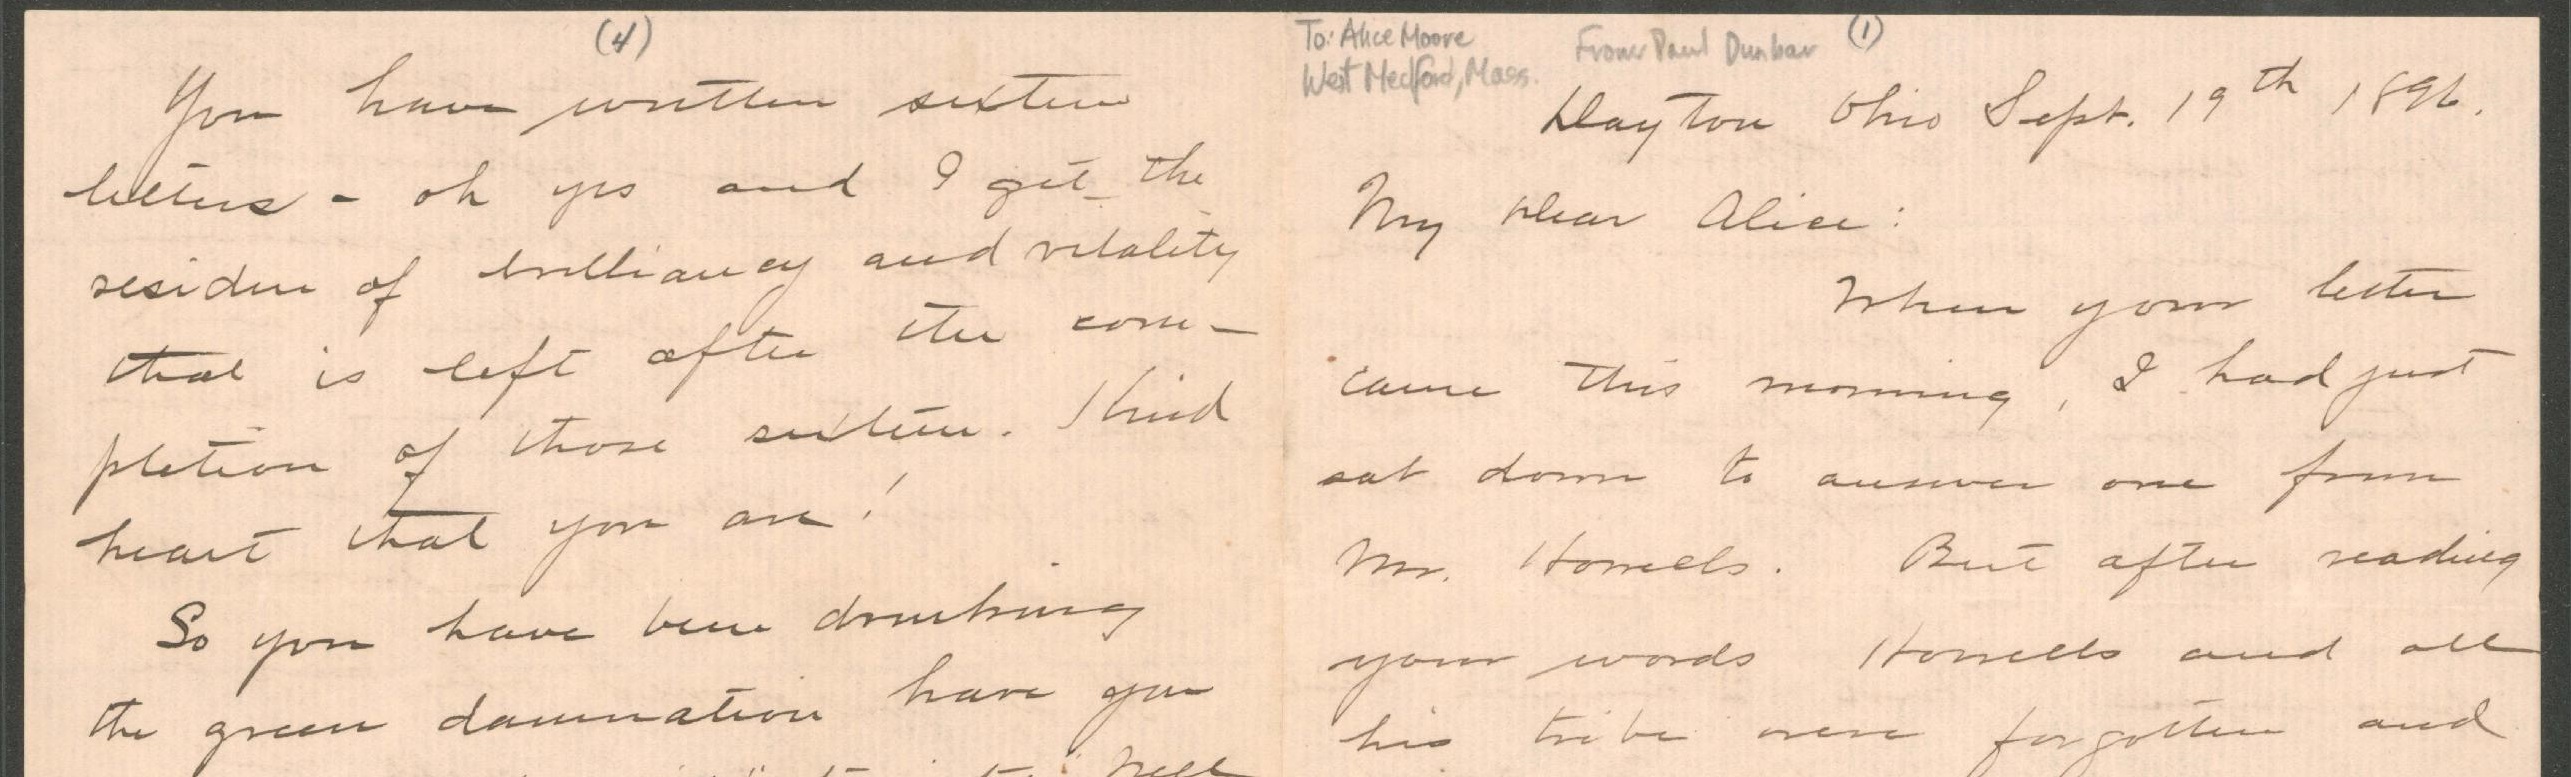 (4)
You have written sixteen
letters - oh yes and I get the
residue of brilliancy and vitality
that is left after the com-
pletion of those sixteen. Kind
heart that you are!
So you have been drinking
the green damnation have you
To: Alice Moore
West Medford, Mass.
From Paul Dunbar
(1)
Dayton Ohio Sept. 19th 1896.
My Dear Alice:
When your letter
came this morning, I had just
sat down to answer one from
Mr. Howells. But after reading
your words Howells and all
his tribe were forgotten and